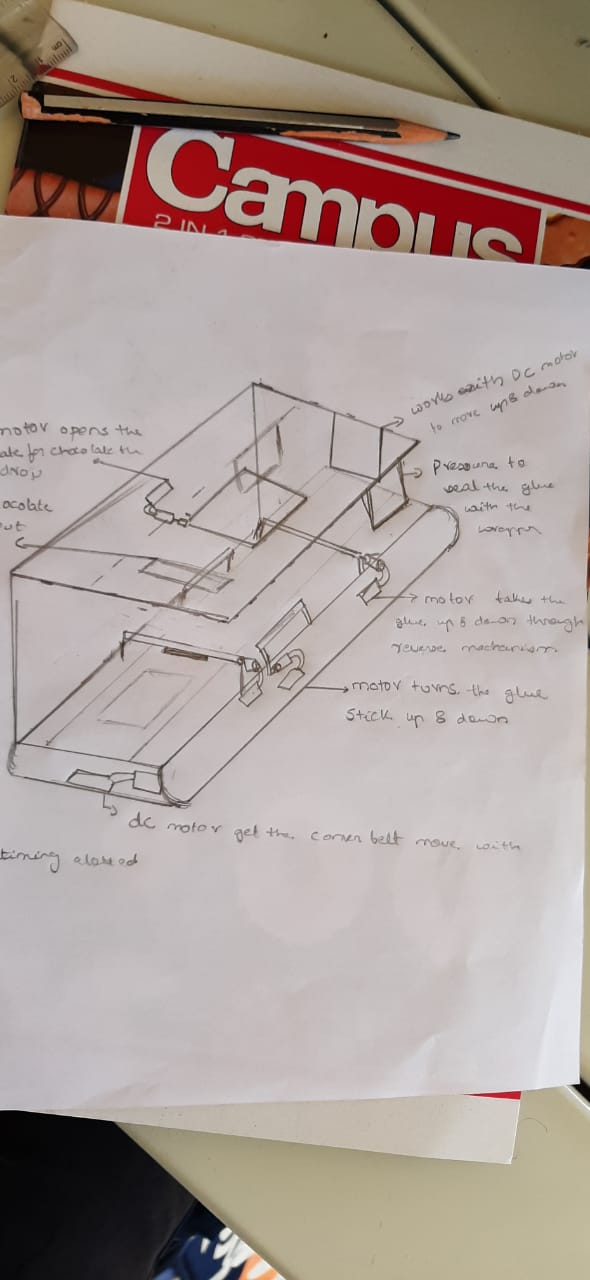 Campus
2 IN 1
works with DC motor
to move up & down
motor opens the
ate for chocolate to
drop
Pressure to
seal the glue
with the
wrapper
ocolate
ut
motor takes the
glue up & down through
reverse mechanism.
motor turns the glue
stick up & down
dc motor get the conver belt move with
timing aloted